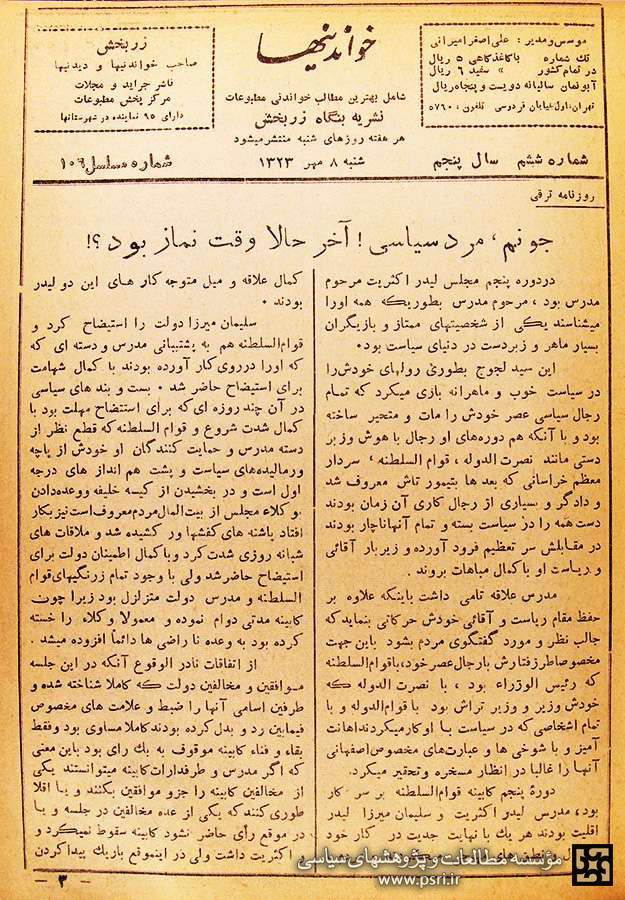 موسس و مدیر : علی اصغر امیرانی
تك شماره باكاغذكاهی ۵ ریال
در تمام كشور » سفید ۶ ریال
آبونمان سالیانه دویست و پنجاه ریال
تهران، اول خیابان فردوسی تلفون : ۵۷۶۰
خواندنیها
شامل بهترین مطالب خواندنی مطبوعات
نشریه بنگاه زربخش
هر هفته روزهای شنبه منتشر میشود
زربخش
صاحب خواندنیها و دیدنیها
ناشر جراید و مجلات
مركز پخش مطبوعات
دارای ۹۵ نماینده در شهرستانها
شماره ششم سال پنجم
شنبه ۸ مهر ۱۳۲۳
شماره مسلسل ۱۰۶
روزنامه ترقی
جونم، مرد سیاسی ! آخر حالا وقت نماز بود ؟!
در دوره پنجم مجلس لیدر اكثریت مرحوم
مدرس بود ، مرحوم مدرس بطوریكه همه اورا
میشناسند یكی از شخصیتهای ممتاز و بازیگران
بسیار ماهر و زبردست در دنیای سیاست بود•
این سید لجوج بطوری رولهای خودش را
در سیاست خوب و ماهرانه بازی میكرد كه تمام
رجال سیاسی عصر خودش را مات و متحیر ساخته
بود و با آنكه هم دوره‌های او رجال با هوش و زبر
دستی مانند نصرت الدوله ، قوام السلطنه ، سردار
معظم خراسانی كه بعد ها بتیمور تاش معروف شد
و دادگر و بسیاری از رجال كاری آن زمان بودند
دست همه را در سیاست بسته و تمام آنها ناچار بودند
در مقابلش سر تعظیم فرود آورده و زیر بار آقائی
و ریاست او با كمال مباهات بروند .
مدرس علاقه تامی داشت باینكه علاوه بر
حفظ مقام ریاست و آقائی خودش حركاتی بنماید كه
جالب نظر و مورد گفتگوی مردم بشود باین جهت
مخصوصا طرز رفتارش با رجال عصر خود، با قوام السلطنه
كه رئیس الوزراء بود ، با نصرت الدوله كه
خودش وزیر و وزیر تراش بود با قوام الدوله و با
تمام اشخاصی كه در سیاست با او كار میكردند اهانت
آمیز و با شوخی ها و عبارت‌های مخصوص اصفهانی
آنها را غالبا در انظار مسخره و تحقیر میكرد.
دورهٔ پنجم كابینه قوام السلطنه بر سر كار
بود، مدرس لیدر اكثریت و سلیمان میرزا لیدر
اقلیت بودند هر یك با نهایت جدیت در كار خود
كمال علاقه و میل متوجه كار های این دو لیدر
بودند •
سلیمان میرزا دولت را استیضاح كرد و
قوام السلطنه هم به پشتیبانی مدرس و دسته ای كه
كه اورا در روی كار آورده بودند با كمال شهامت
برای استیضاح حاضر شد • بست و بند های سیاسی
در آن چند روزه ای كه برای استضاح مهلت بود با
كمال شدت شروع و قوام السلطنه كه قطع نظر از
دسته مدرس و حمایت كنندگان او خودش از پاچه
ورمالیده‌های سیاست و پشت هم انداز های درجه
اول است و در بخشیدن از كیسه خلیفه و وعده دادن
بو كلاء مجلس از بیت المال مردم معروف است نیز بكار
افتاد پاشنه های كفشها ور كشیده شد و ملاقات های
شبانه روزی شدت كرد و با كمال اطمینان دولت برای
استیضاح حاضر شد ولی با وجود تمام زرنگیهای قوام
السلطنه و مدرس دولت متزلزل بود زیرا چون
كابینه مدتی دوام نموده و معمولا وكلاء را خسته
كرده بود به وعده نا راضی ها دائماً افزوده میشد .
از اتفاقات نادر الوقوع آنكه در این جلسه
موافقین و مخالفین دولت كه كاملا شناخته شده و
طرفین اسامی آنها را ضبط و علامت های مخصوص
فیمابین رد و بدل كرده بودند كاملا مساوی بود و فقط
بقاء و فناء كابینه موقوف به یك رای بود باین معنی
كه اگر مدرس و طرفداران كابینه میتوانستند یكی
از مخالفین كابینه را جزو موافقین بكنند و یا اقلا
طوری كنند كه یكی از عده مخالفین در جلسه و یا
در موقع رأی حاضر نشود كابینه سقوط نمیكرد و
اكثریت داشت ولی در اینموقع باریك پیدا كردن
- ۳ -
مؤسسه مطالعات و پژوهشهای سیاسی
www.psri.ir